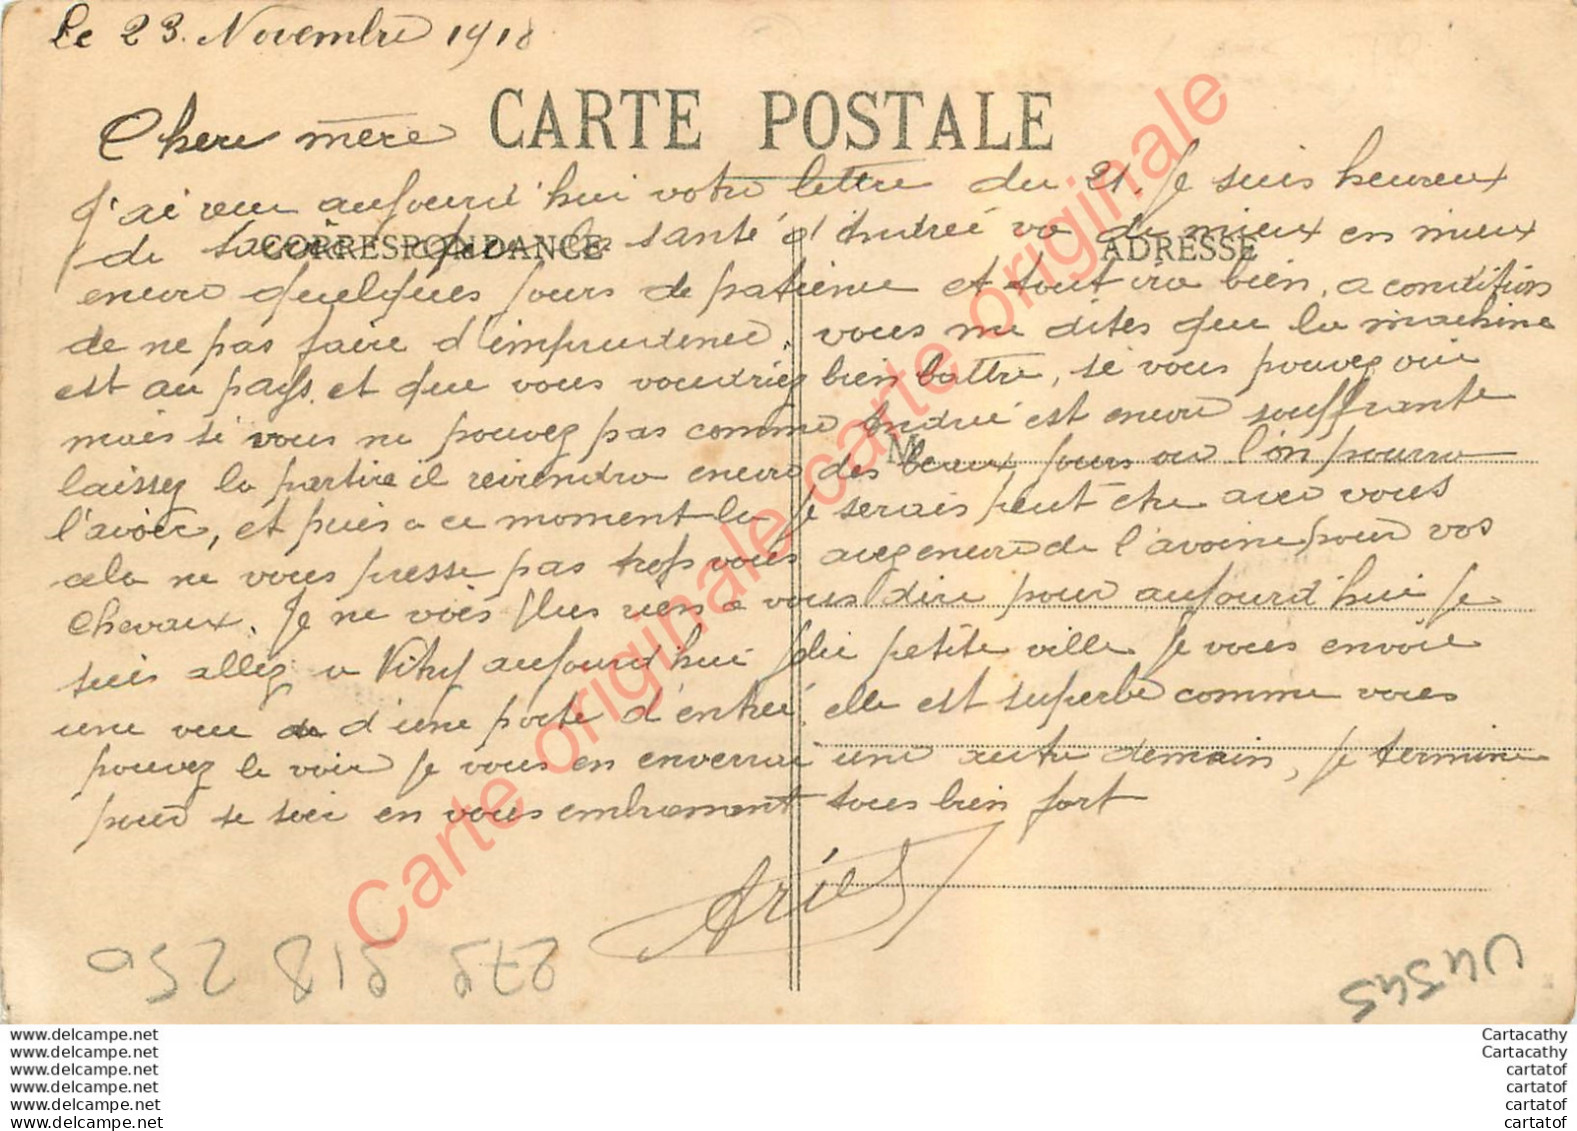 Le 23. Novembre 1918
CARTE POSTALE
Chere mère
J'ai recu aujourd'hui votre lettre du 21. Je suis heureux
CORRESPONDANCE
ADRESSE
de savoir que la santé d'Andrée va de mieux en mieux
encore quelques jours de patience et tout ira bien, a condition
de ne pas faire d'imprudence. vous me dites que la machine
est au pays. et que vous voudriez bien battre, si vous pouvez oui
mais si vous ne pouvez pas comme Andrée est encore souffrante
M
laissez la partire il reviendra encore des beaux jours ou l'on pourra
l'avoir, et puis a ce moment la je serais peut être avec vous
cela ne vous presse pas trop vous avez encore de l'avoine pour vos
chevaux. Je ne vois plus rien a vous dire pour aujourd'hui je
suis allez a Vitry aujourd'hui jolie petite ville je vous envoie
une vue d'une porte d'entrée, elle est superbe comme vous
pouvez le voir je vous en enverrai une autre demain, je termine
pour ce soir en vous embrassant tous bien fort
Carte originale carte originale
278 818 250
U4545
www.delcampe.net
www.delcampe.net
www.delcampe.net
www.delcampe.net
www.delcampe.net
www.delcampe.net
Cartacathy
Cartacathy
cartatof
cartatof
cartatof
cartatof